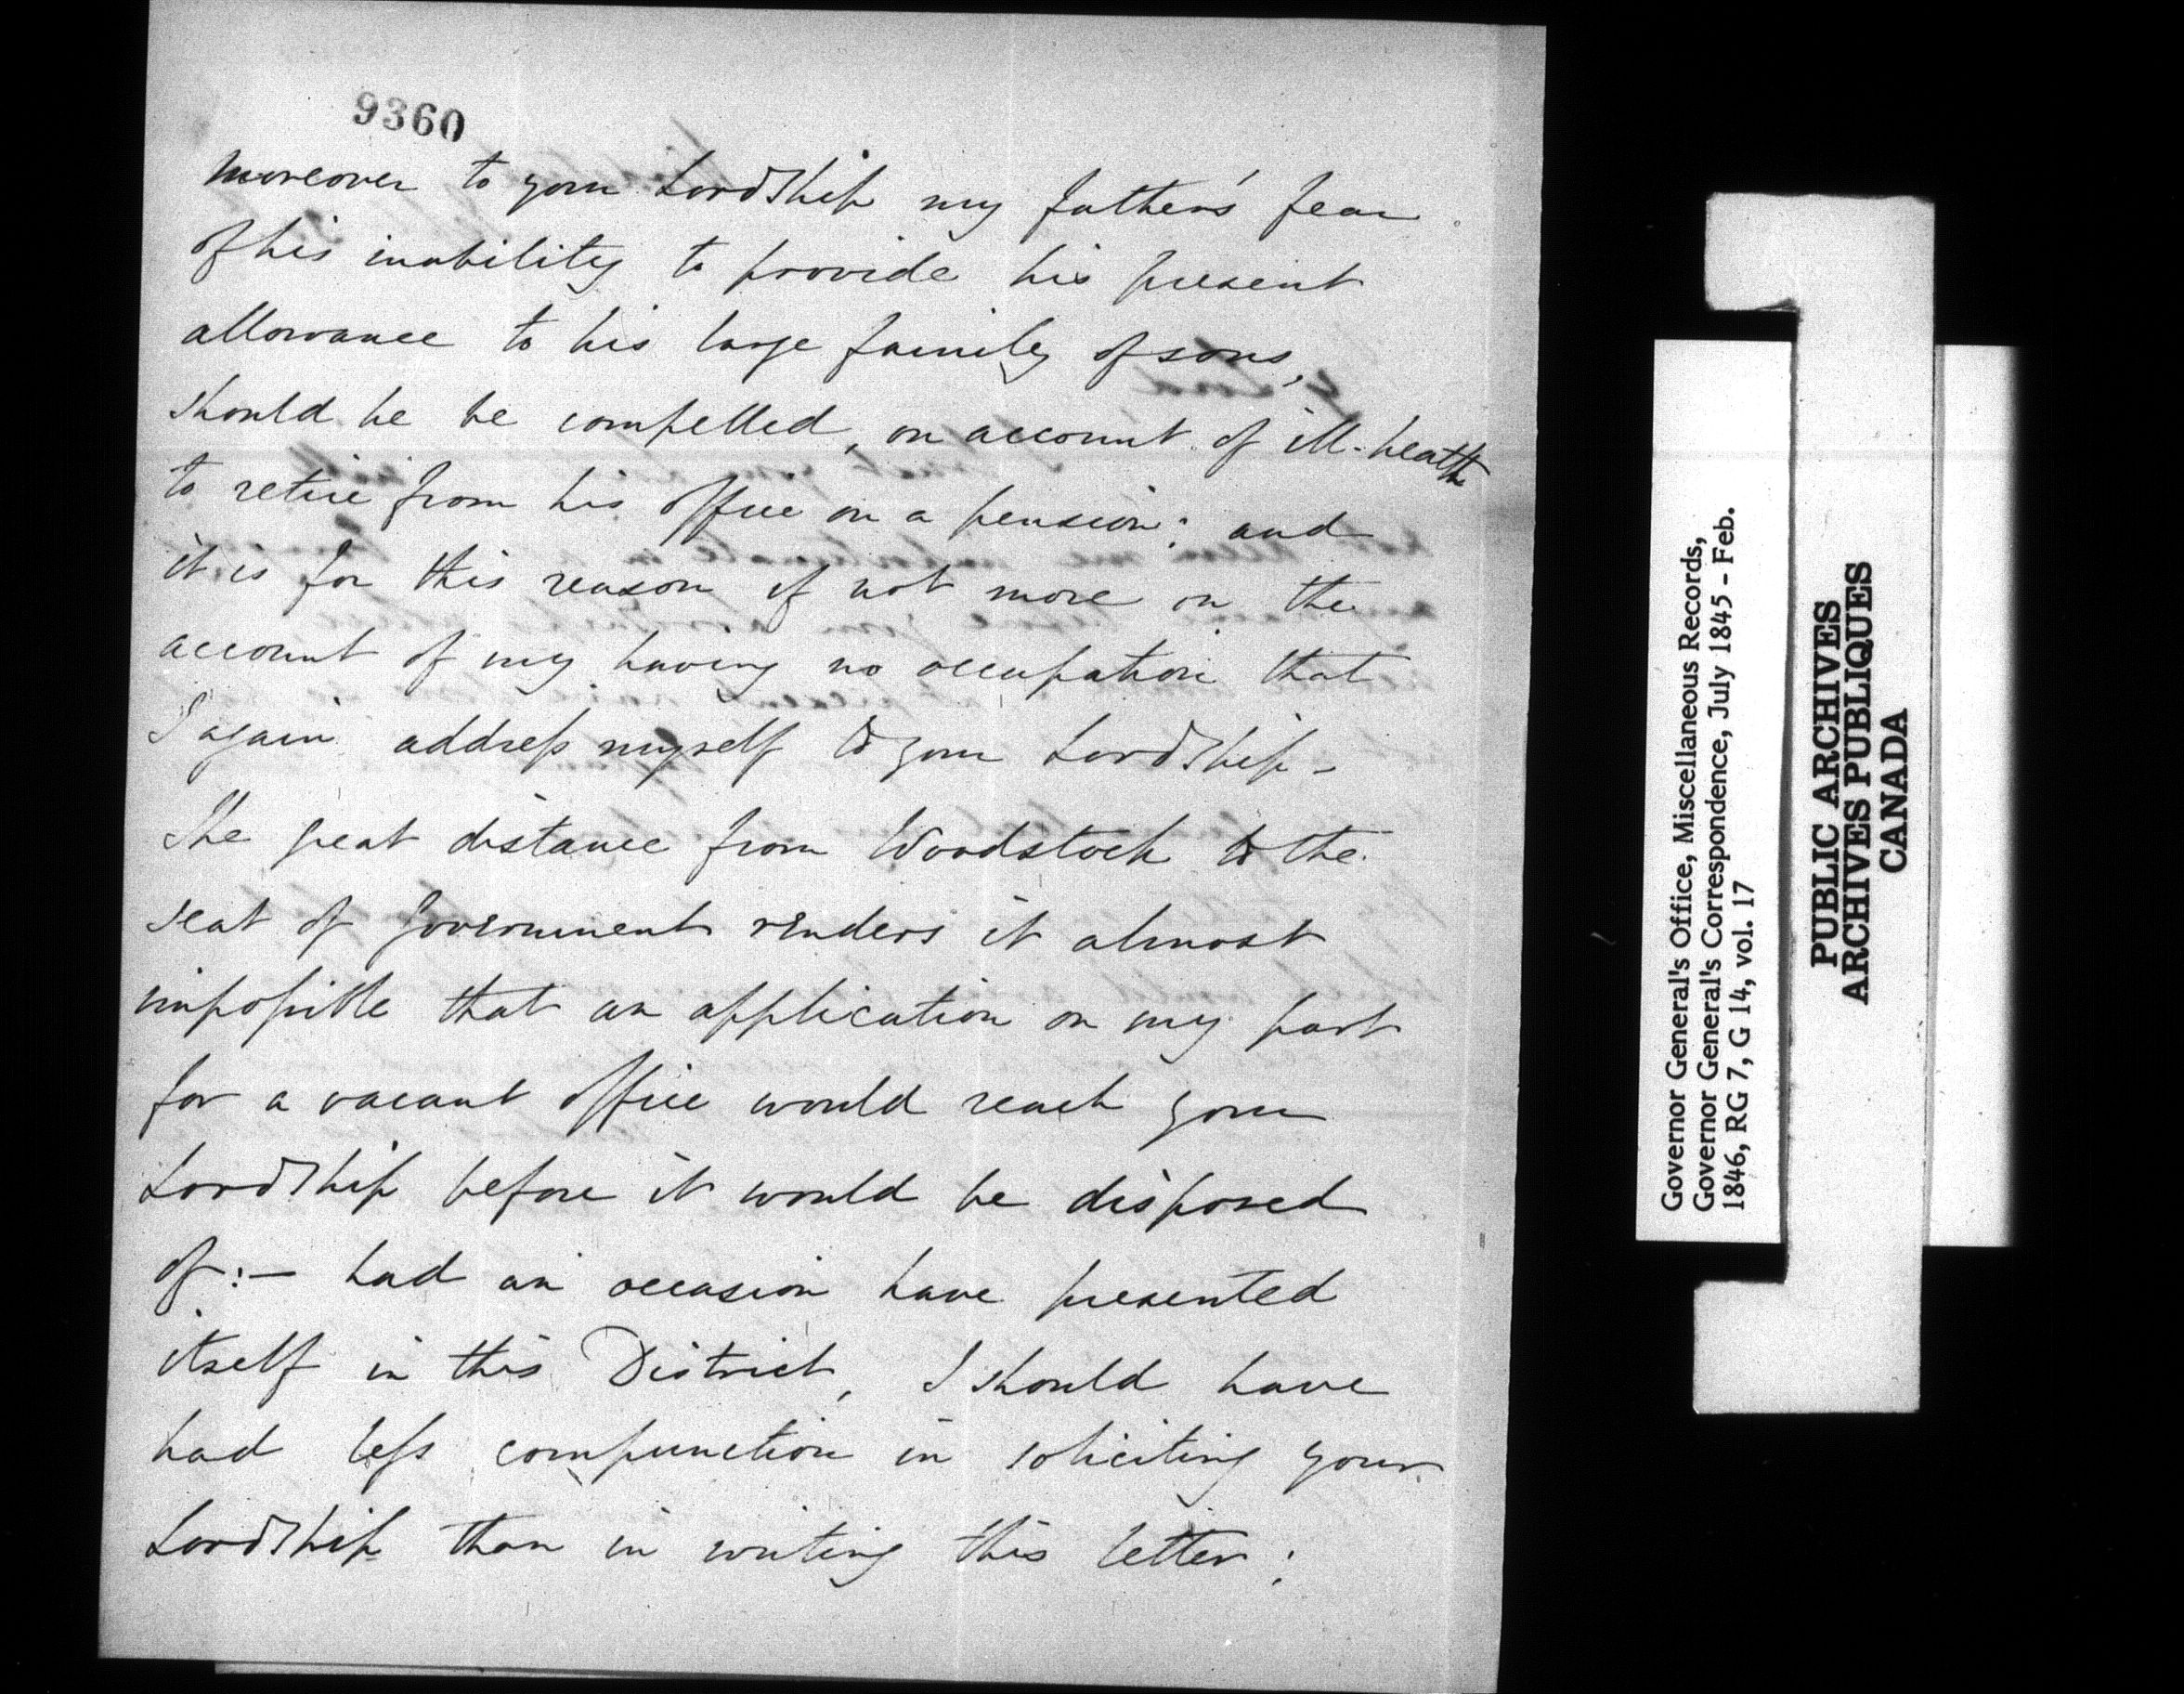 9360
moreover to your Lordship my father's fear
of his inability to provide his present
allowance to his large family of sons,
should he be compelled, on account of ill-health
to retire from his office on a pension: and
it is for this reason if not more on the
account of my having no occupation that
I again address myself to your Lordship -
The great distance from Woodstock to the
seat of Government renders it almost
impossible that an application on my part
for a vacant office would reach your
Lordship before it would be disposed
of:- had an occasion have presented
itself in this District, I should have
had less compunction in soliciting your
Lordship than in writing this letter;
Governor General's Office, Miscellaneous Records,
Governor General's Correspondence, July 1845 - Feb.
1846, RG 7, G 14, vol. 17
PUBLIC ARCHIVES
ARCHIVES PUBLIQUES
CANADA